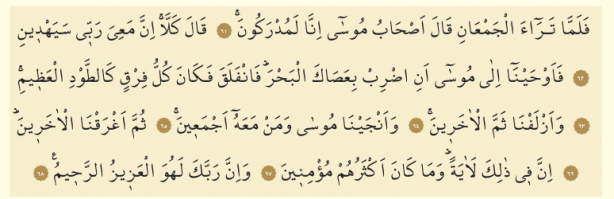 فَلَمَّا تَرَٓاءَ الْجَمْعَانِ قَالَ اَصْحَابُ مُوسٰٓى اِنَّا لَمُدْرَكُونَۚ ﴿٦١﴾ قَالَ كَلَّاۚ اِنَّ مَعِيَ رَبّ۪ي سَيَهْد۪ينِ
﴿٦٢﴾ فَاَوْحَيْنَٓا اِلٰى مُوسٰٓى اَنِ اضْرِبْ بِعَصَاكَ الْبَحْرَۜ فَانْفَلَقَ فَكَانَ كُلُّ فِرْقٍ كَالطَّوْدِ الْعَظ۪يمِۚ
﴿٦٣﴾ وَاَزْلَفْنَا ثَمَّ الْاٰخَر۪ينَۚ ﴿٦٤﴾ وَاَنْجَيْنَا مُوسٰى وَمَنْ مَعَهُٓ اَجْمَع۪ينَۚ ﴿٦٥﴾ ثُمَّ اَغْرَقْنَا الْاٰخَر۪ينَۜ
﴿٦٦﴾ اِنَّ ف۪ي ذٰلِكَ لَاٰيَةًۜ وَمَا كَانَ اَكْثَرُهُمْ مُؤْمِن۪ينَ ﴿٦٧﴾ وَاِنَّ رَبَّكَ لَهُوَ الْعَز۪يزُ الرَّح۪يمُ۟ ﴿٦٨﴾